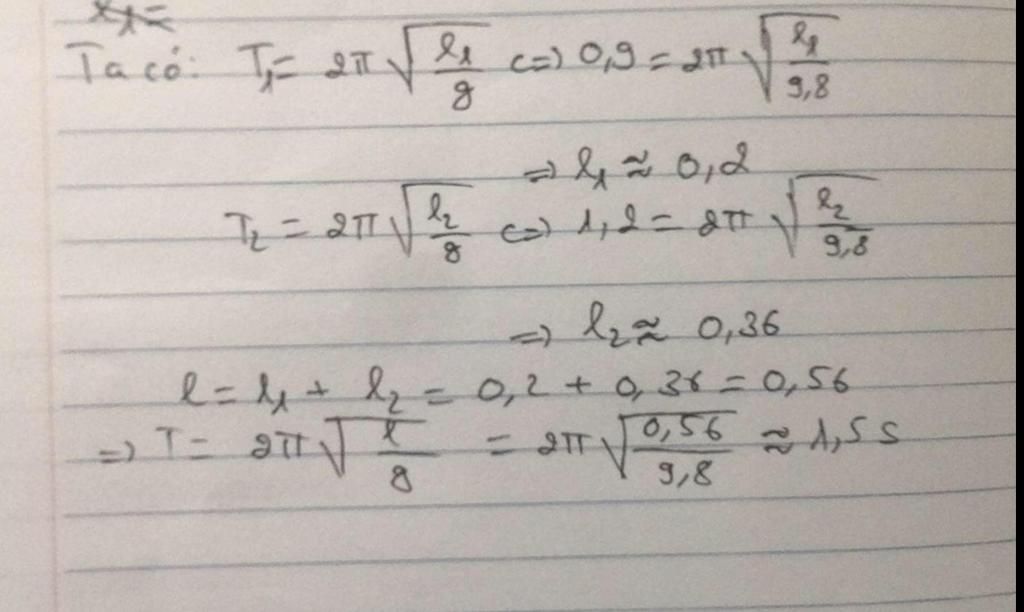 x₁ =
Ta có: T₁ = 2π√(l₁/g) <=> 0,9 = 2π√(l₁/9,8)
=> l₁ ≈ 0,2
T₂ = 2π√(l₂/g) <=> 1,2 = 2π√(l₂/9,8)
=> l₂ ≈ 0,36
l = l₁ + l₂ = 0,2 + 0,36 = 0,56
=> T = 2π√(l/g) = 2π√(0,56/9,8) ≈ 1,5 s